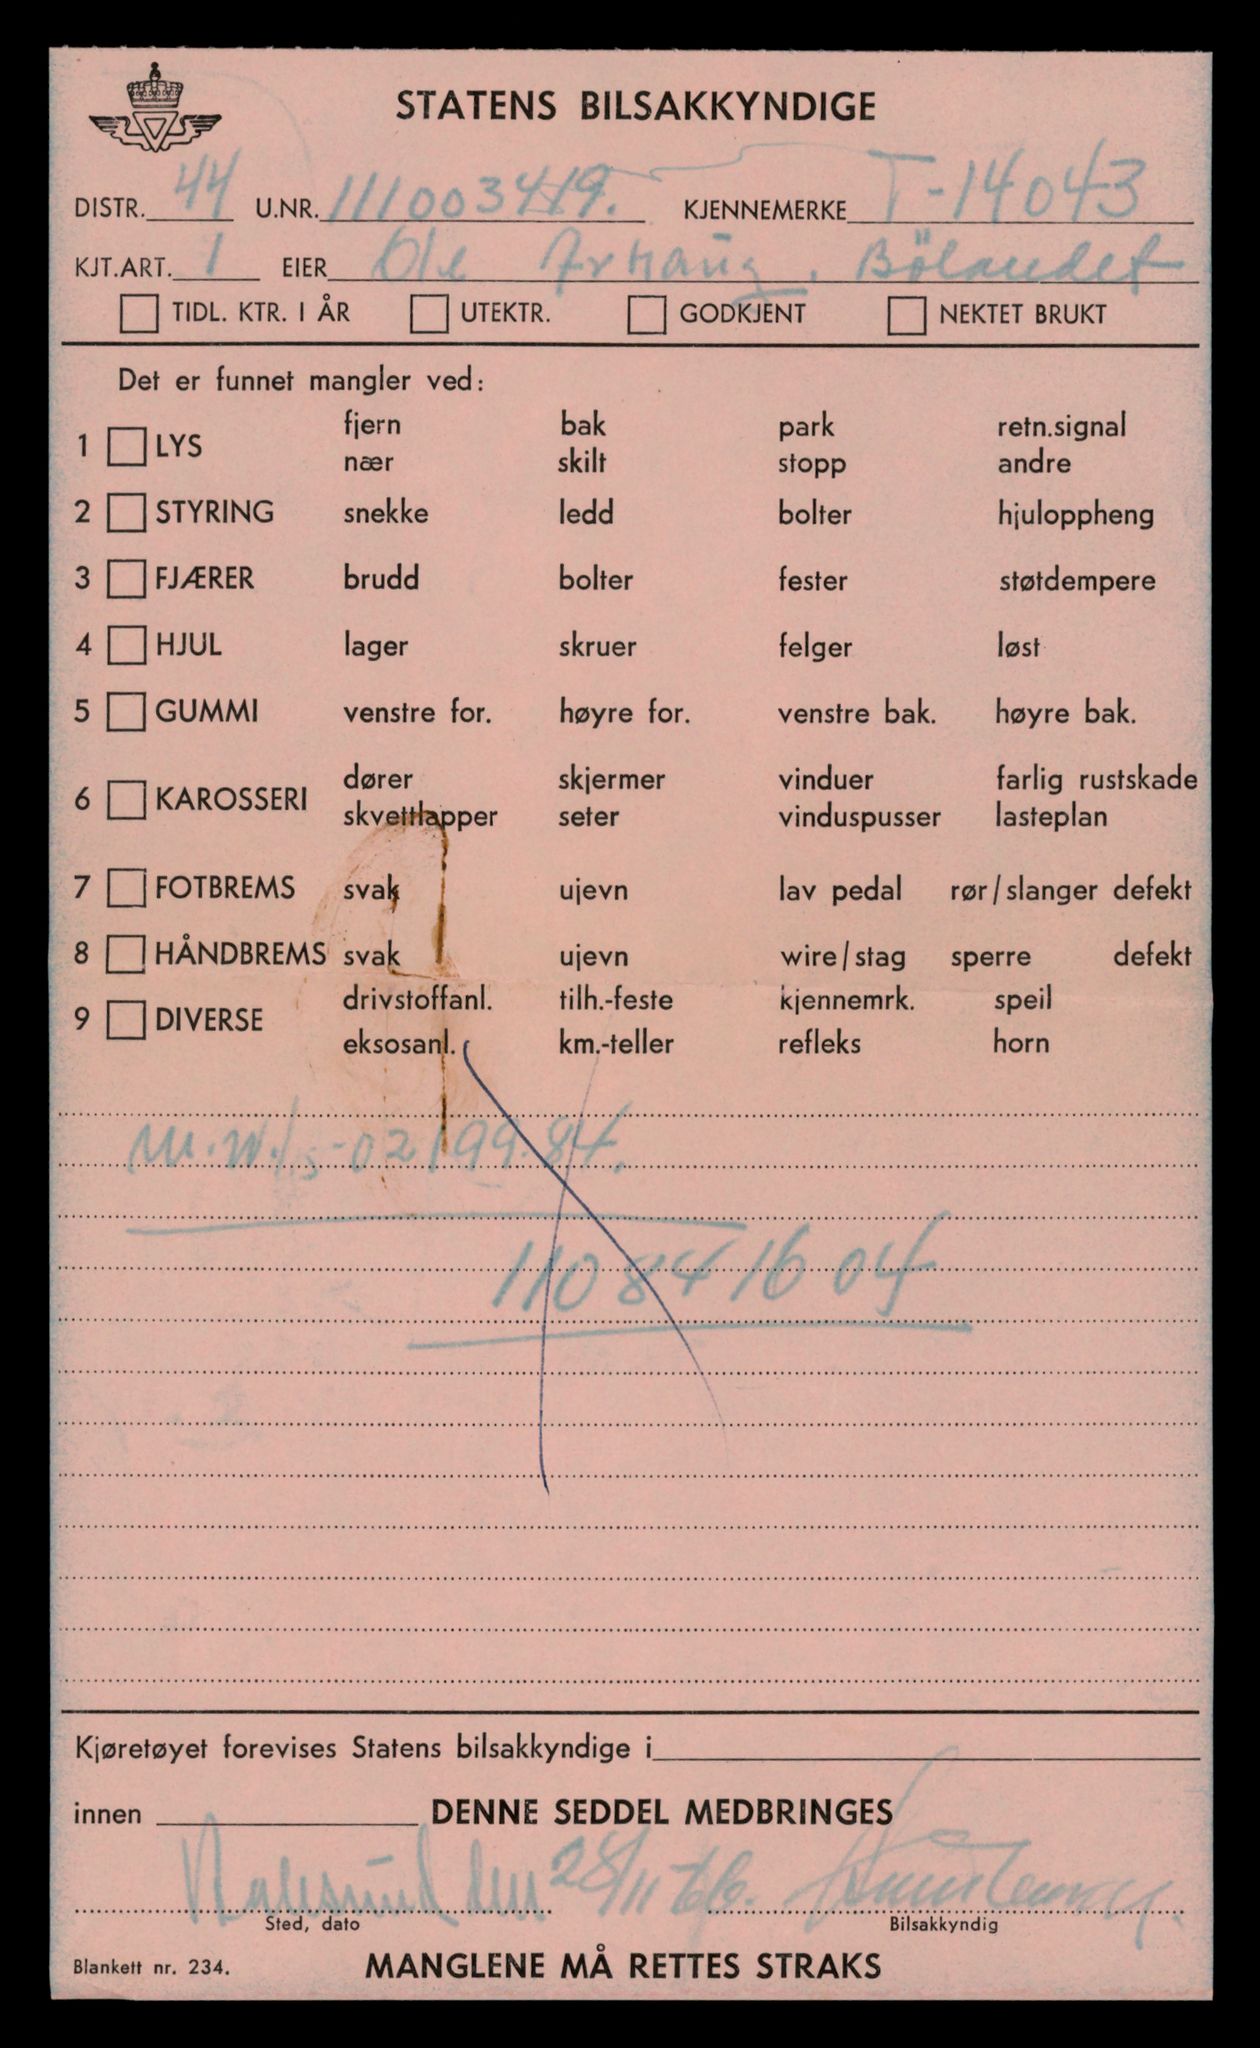 STATENS BILSAKKYNDIGE
DISTR. 44 U.NR. 111003419. KJENNEMERKE T-14043
KJT.ART. 1 EIER Ole Arhaug, Bölandet
TIDL. KTR. I ÅR UTEKTR. GODKJENT NEKTET BRUKT
Det er funnet mangler ved:
fjern bak park retn.signal
1 LYS
nær skilt stopp andre
2 STYRING snekke ledd bolter hjuloppheng
3 FJÆRER brudd bolter fester støtdempere
4 HJUL lager skruer felger løst
5 GUMMI venstre for. høyre for. venstre bak. høyre bak.
dører skjermer vinduer farlig rustskade
6 KAROSSERI
skvettlapper seter vinduspusser lasteplan
7 FOTBREMS svak ujevn lav pedal rør/slanger defekt
8 HÅNDBREMS svak ujevn wire/stag sperre defekt
drivstoffanl. tilh.-feste kjennemrk. speil
9 DIVERSE
eksosanl. km.-teller refleks horn
02199.84.
110 84 16 04
Kjøretøyet forevises Statens bilsakkyndige i
innen DENNE SEDDEL MEDBRINGES
den 28/11 66.
Sted, dato Bilsakkyndig
Blankett nr. 234. MANGLENE MÅ RETTES STRAKS